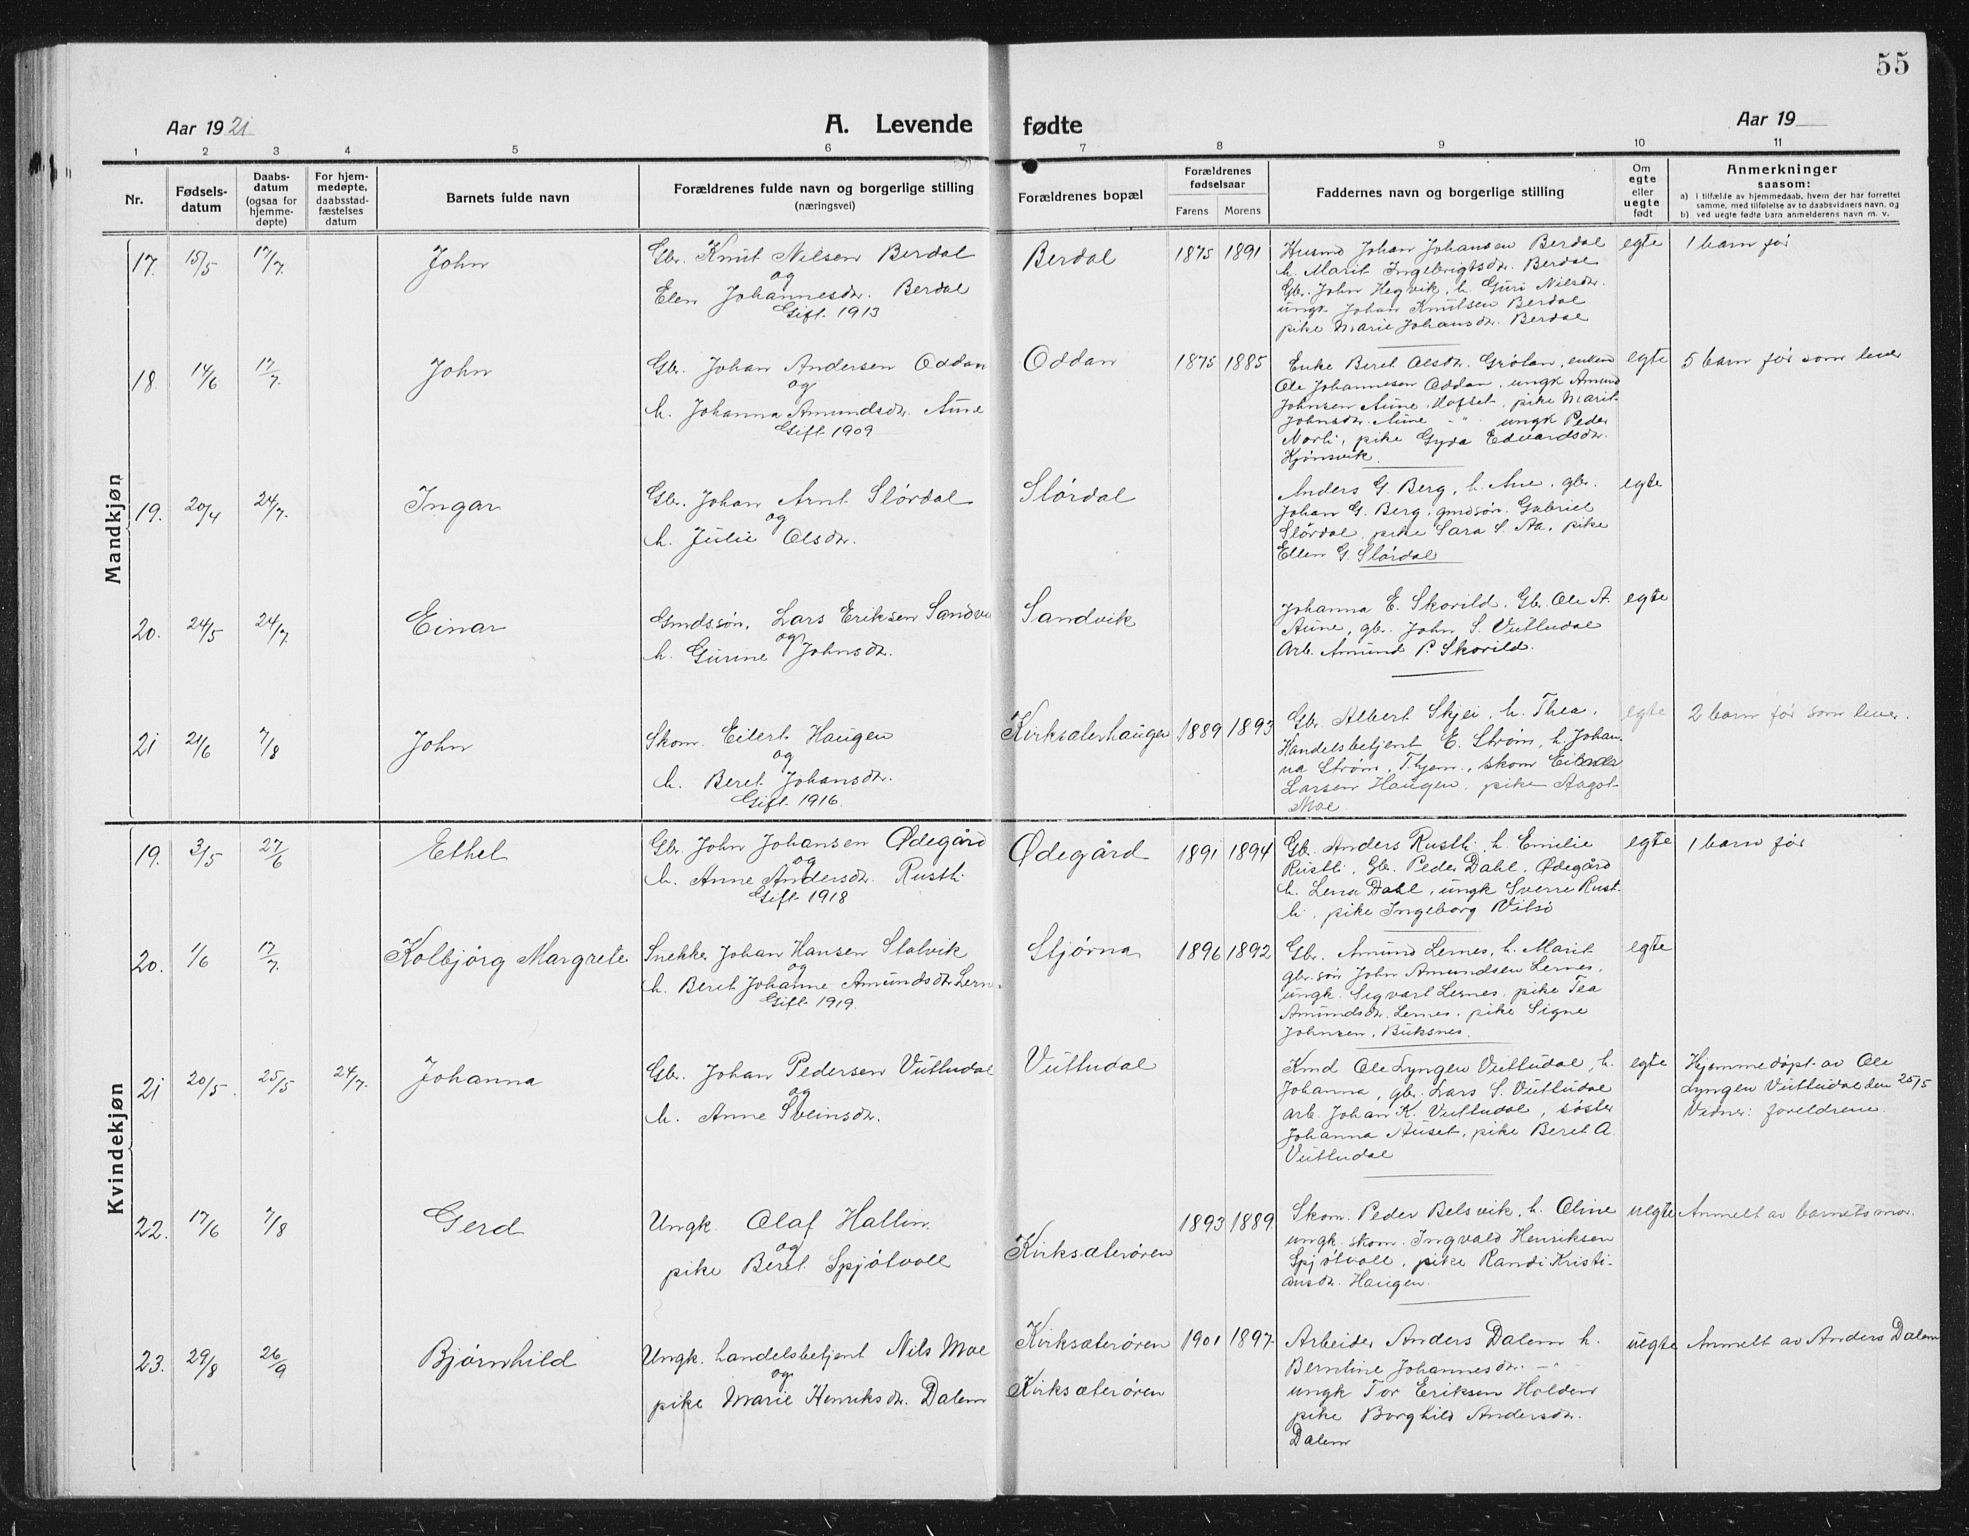 55
Aar 1921
A. Levende fødte
Aar 19
1 2 3 4 5 6 7 8 9 10 11
Nr.
Fødsels-
datum
Daabs-
datum
(ogsaa for
hjemme-
døpte)
For hjem-
medøpte,
daabsstad-
fæstelses
datum
Barnets fulde navn
Forældrenes fulde navn og borgerlige stilling
(næringsvei)
Forældrenes bopæl
Forældrenes
fødselsaar
Farens Morens
Faddernes navn og borgerlige stilling
Om
egte
eller
uegte
født
Anmerkninger
saasom:
a) i tilfælde av hjemmedaab, hvem der har forrettet
samme, med tilføielse av to daabsvidners navn, og
b) ved uegte fødte barn anmelderens navn m. v.
Mandkjøn
17. 15/5 17/7. John
Gbr. Knut Nilsen Berdal
og
Elen Johannesdr. Berdal
Gift 1913
Berdal 1875 1891
Husmd Johan Johansen Berdal
h. Marit Ingebrigtsdr. Berdal
Gbr. John Hegvik, h. Guri Nilsdr.
ungk Johan Knutsen Berdal
pike Marie Johansdr. Berdal
egte 1 barn før
18. 14/6 17/7. John
Gbr. Johan Andersen Oddan
og
h. Johanna Amundsdr. Aune
Gift 1909
Oddan 1875 1885
Enke Beret Olsdr. Grötan, enkem
Ole Johannesen Oddan, ungk Amund
Johnsen Aune, Hofset, pike Marit
Johnsdr. Aune -"- ungk Peder
Norli, pike Gyda Edvardsdr.
Hjönsvik.
egte 5 barn før som lever
19. 20/4 24/7. Ingar
Gbr. Johan Arnt Slördal
og
h. Julie Olsdr.
Slördal
Anders G. Berg, h. Ane, gbr.
Johan G. Berg, gmdsön. Gabriel
Slördal, pike Sara S. Aa, pike
Ellen G. Slördal
egte
20. 24/5 24/7. Einar
Gmdssön. Lars Eriksen Sandv
og
h. Gurine Johnsdr.
Sandvik
Johanna E. Skorild. Gb. Ole A.
Aune, gbr. John S. Vuttudal
Arb. Amund P. Skorild.
egte
21 21/6 7/8 John
Skom. Eilert Haugen
og
h. Beret Johansdr.
Gift 1916.
Kirksæterhaugen 1889 1893
Gbr Albert Skjei, h. Thea,
Handelsbetjent E. Strøm, h. Johan-
na Strøm, Thjem., skom
Larsen Haugen, pike Aagot
Moe.
egte 2 barn før som lever.
Kvindekjøn
19. 3/5 27/6 Ethel
Gbr. John Johansen Ødegård
og
h. Anne Andersdr. Rustli
Gift 1918
Ødegård 1891 1894
Gb. Anders Rustli, h. Emilie
Rustli, Gb. Peder Dahl, Ødegård
h. Lena Dahl, ungk Sverre Rust-
li, pike Ingeborg Vitsö
egte 1 barn før
20. 1/6 17/7. Kolbjørg Margrete
Snekker Johan Hansen Stalvik
og
h. Beret Johanne Amundsdr Lern
Gift 1919.
Stjørna 1896 1892
Gbr. Amund Lernes, h. Marit
gbr.sön John Amundsen Lernes,
ungk. Sigvart Lernes, pike Tea
Amundsdr. Lernes, pike Signe
Johnsen, Buksnes.
egte
21 20/5. 25/5 24/7. Johanna
Gbr. Johan Pedersen Vuttudal
og
h. Anne Sveinsdr.
Vuttudal
Kmd Ole Lyngen Vuttudal, h.
Johanna, gbr. Lars S. Vuttudal
arb. Johan K. Vuttudal, søster
Johanna Auset, pike Beret A.
Vuttudal
egte
Hjemmedøpt av Ole
Lyngen Vuttudal den 25/5
Vidner: foreldrene
22. 17/6 7/8 Gerd
Ungk. Olaf Hallin
og
pike Beret Spjötvoll
Kirksæterøren
1893 1889.
Skom. Peder Belsvik, h. Oline
ungk. skom. Ingvald Henriksen
Spjötvoll, pike Randi Kristi-
ansdr. Haugen.
uegte Anmelt av barnets mor.
23. 29/8 26/9 Bjørnhild
Ungk. handelsbetjent Nils Moe
og
pike Marie Henriksdr. Dalem
Kirksæterøren
Kirksæterøren
1901 1897.
Arbeider Anders Dalem h.
Berntine Johannesdr. -"-
ungk Tor Eriksen Holden
pike Borghild Andersdr.
Dalem
uegte Anmelt av Anders Dalem